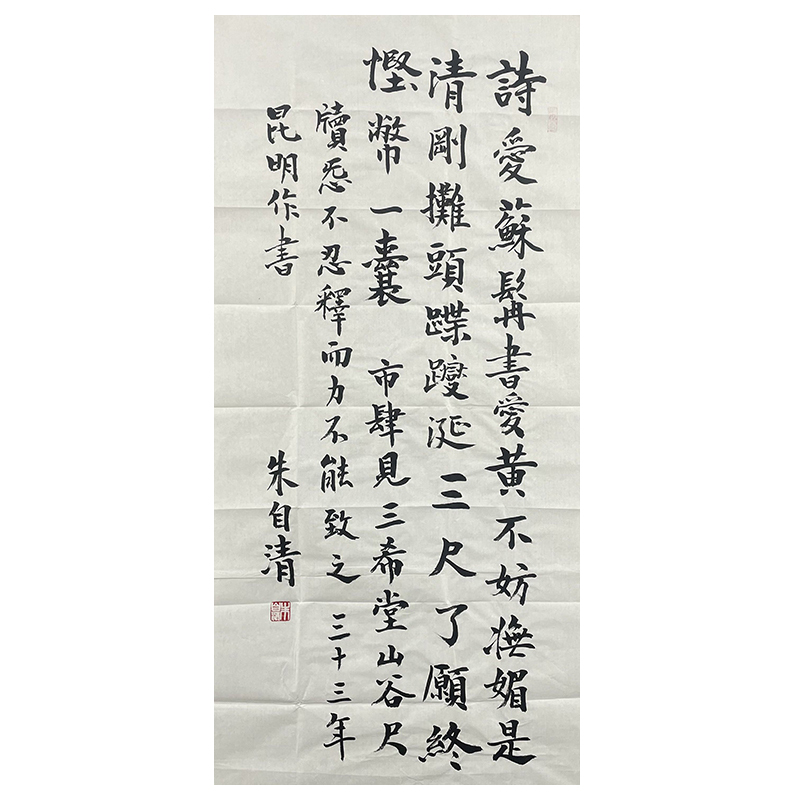 詩愛蘇髯書愛黃不妨嫵媚是
清剛攤頭蹀躞涎三尺了願終
慳幣一囊　市肆見三希堂山谷尺
牘恐不忍釋而力不能致之　三十三年
昆明作書　朱自清